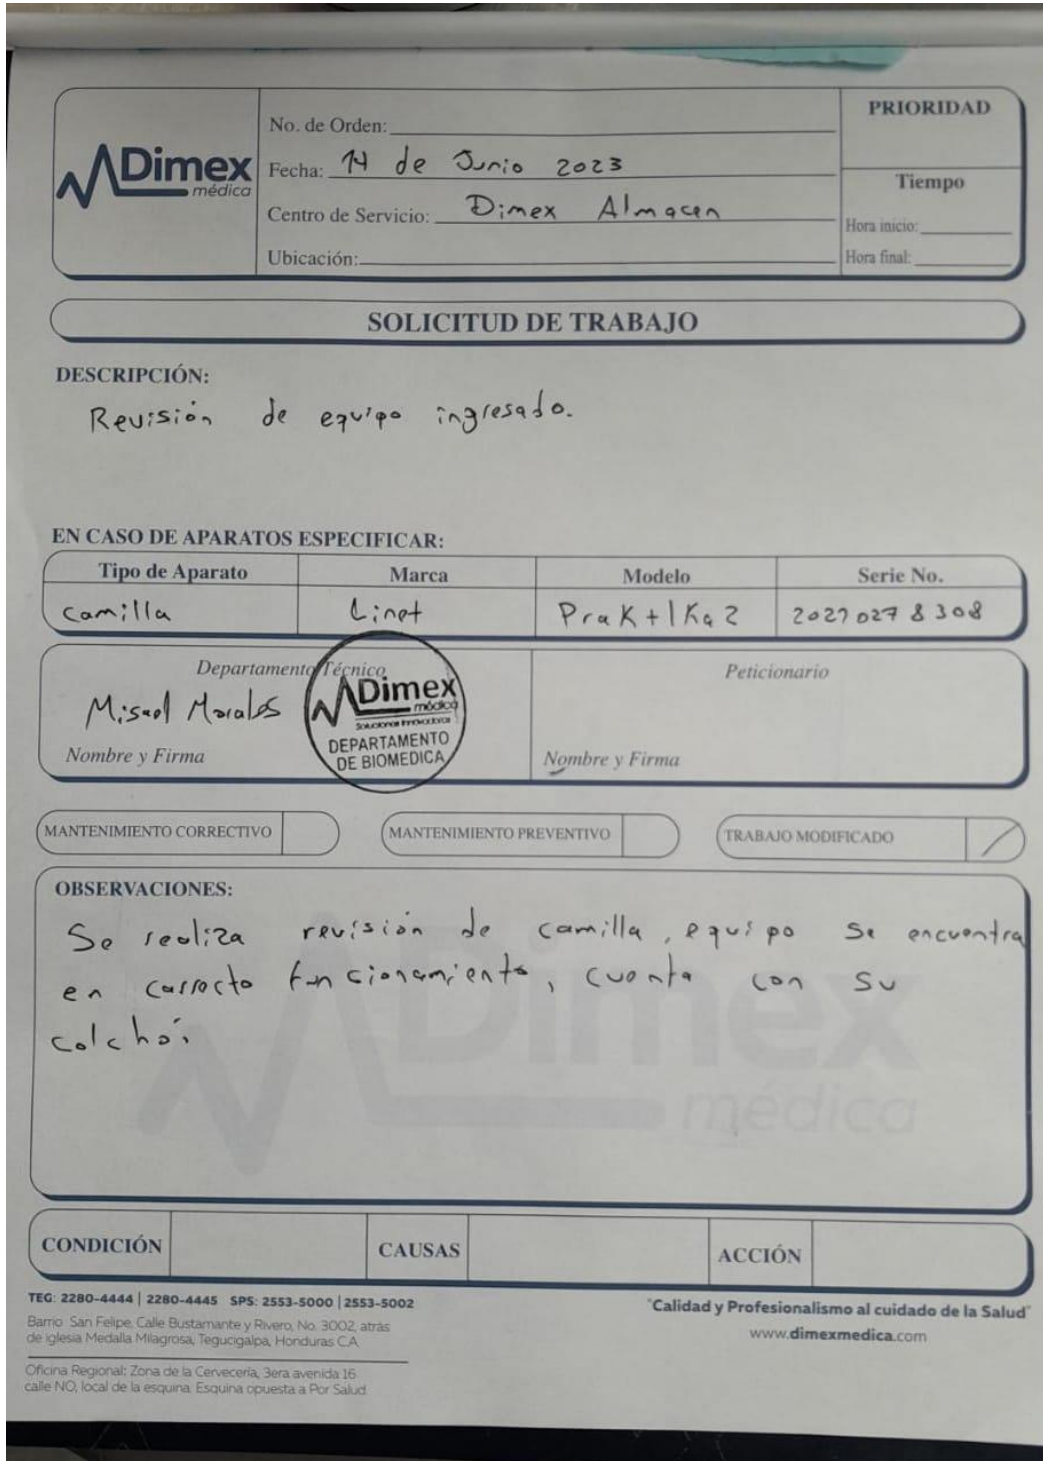 Dimex
médica
No. de Orden:
Fecha: 14 de Junio 2023
Centro de Servicio: Dimex Almacen
Ubicación:
PRIORIDAD
Tiempo
Hora inicio:
Hora final:
SOLICITUD DE TRABAJO
DESCRIPCIÓN:
Revisión de equipo ingresado.
EN CASO DE APARATOS ESPECIFICAR:
Tipo de Aparato Marca Modelo Serie No.
Camilla Linet PraKtIKa2
Departamento Técnico Peticionario
Misael Morales
Nombre y Firma Nombre y Firma
Dimex
médica
Soluciones Innovadoras
DEPARTAMENTO
DE BIOMEDICA
MANTENIMIENTO CORRECTIVO MANTENIMIENTO PREVENTIVO TRABAJO MODIFICADO
OBSERVACIONES:
Se realiza revisión de camilla, equipo se encuentra
en correcto funcionamiento, cuenta con su
colchón
Dimex
médica
CONDICIÓN CAUSAS ACCIÓN
TEG: 2280-4444 | 2280-4445 SPS: 2553-5000 | 2553-5002
Barrio San Felipe, Calle Bustamante y Rivero, No. 3002, atrás
de iglesia Medalla Milagrosa, Tegucigalpa, Honduras C.A
Oficina Regional: Zona de la Cervecería, 3era avenida 16
calle NO, local de la esquina. Esquina opuesta a Por Salud
"Calidad y Profesionalismo al cuidado de la Salud"
www.dimexmedica.com